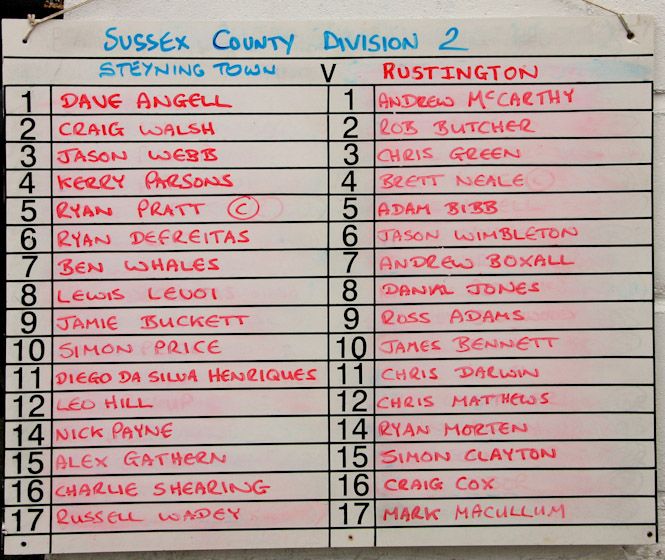 SUSSEX COUNTY DIVISION 2
STEYNING TOWN V RUSTINGTON
1 DAVE ANGELL 1 ANDREW McCARTHY
2 CRAIG WALSH 2 ROB BUTCHER
3 JASON WEBB 3 CHRIS GREEN
4 KERRY PARSONS 4 BRETT NEALE (C)
5 RYAN PRATT (C) 5 ADAM BIBB
6 RYAN DEFREITAS 6 JASON WIMBLETON
7 BEN WHALES 7 ANDREW BOXALL
8 LEWIS LEVOI 8 DANIEL JONES
9 JAMIE BUCKETT 9 ROSS ADAMS
10 SIMON PRICE 10 JAMES BENNETT
11 DIEGO DA SILVA HENRIQUES 11 CHRIS DARWIN
12 LEO HILL 12 CHRIS MATTHEWS
14 NICK PAYNE 14 RYAN MORTEN
15 ALEX GATHERN 15 SIMON CLAYTON
16 CHARLIE SHEARING 16 CRAIG COX
17 RUSSELL WADEY 17 MARK MACULLUM